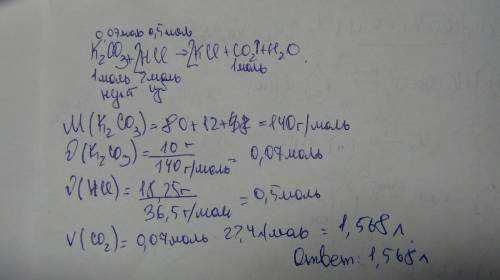 0,07моль 0,5моль
K₂CO₃+2HCl→2KCl+CO₂↑+H₂O.
1моль 2моль 1моль
M(K₂CO₃)=80+12+48=140г/моль
ν(K₂CO₃)=10г/140г/моль=0,07моль
ν(HCl)=18,25г/36,5г/моль=0,5моль
V(CO₂)=0,07моль·22,4л/моль=1,568л.
Ответ: 1,568л.